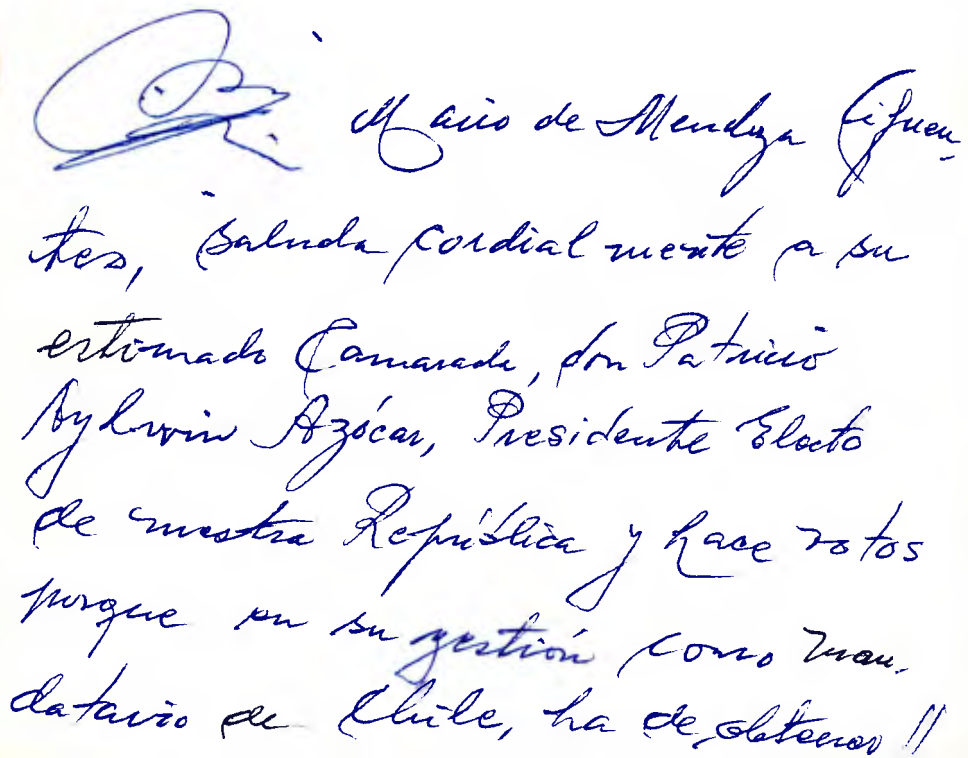 Mario de Mendoza Cifuen-
tes, saluda cordialmente a su
estimado Camarada, don Patricio
Aylwin Azócar, Presidente Electo
de nuestra República y hace votos
porque en su gestión como man-
datario de Chile, ha de obtener //